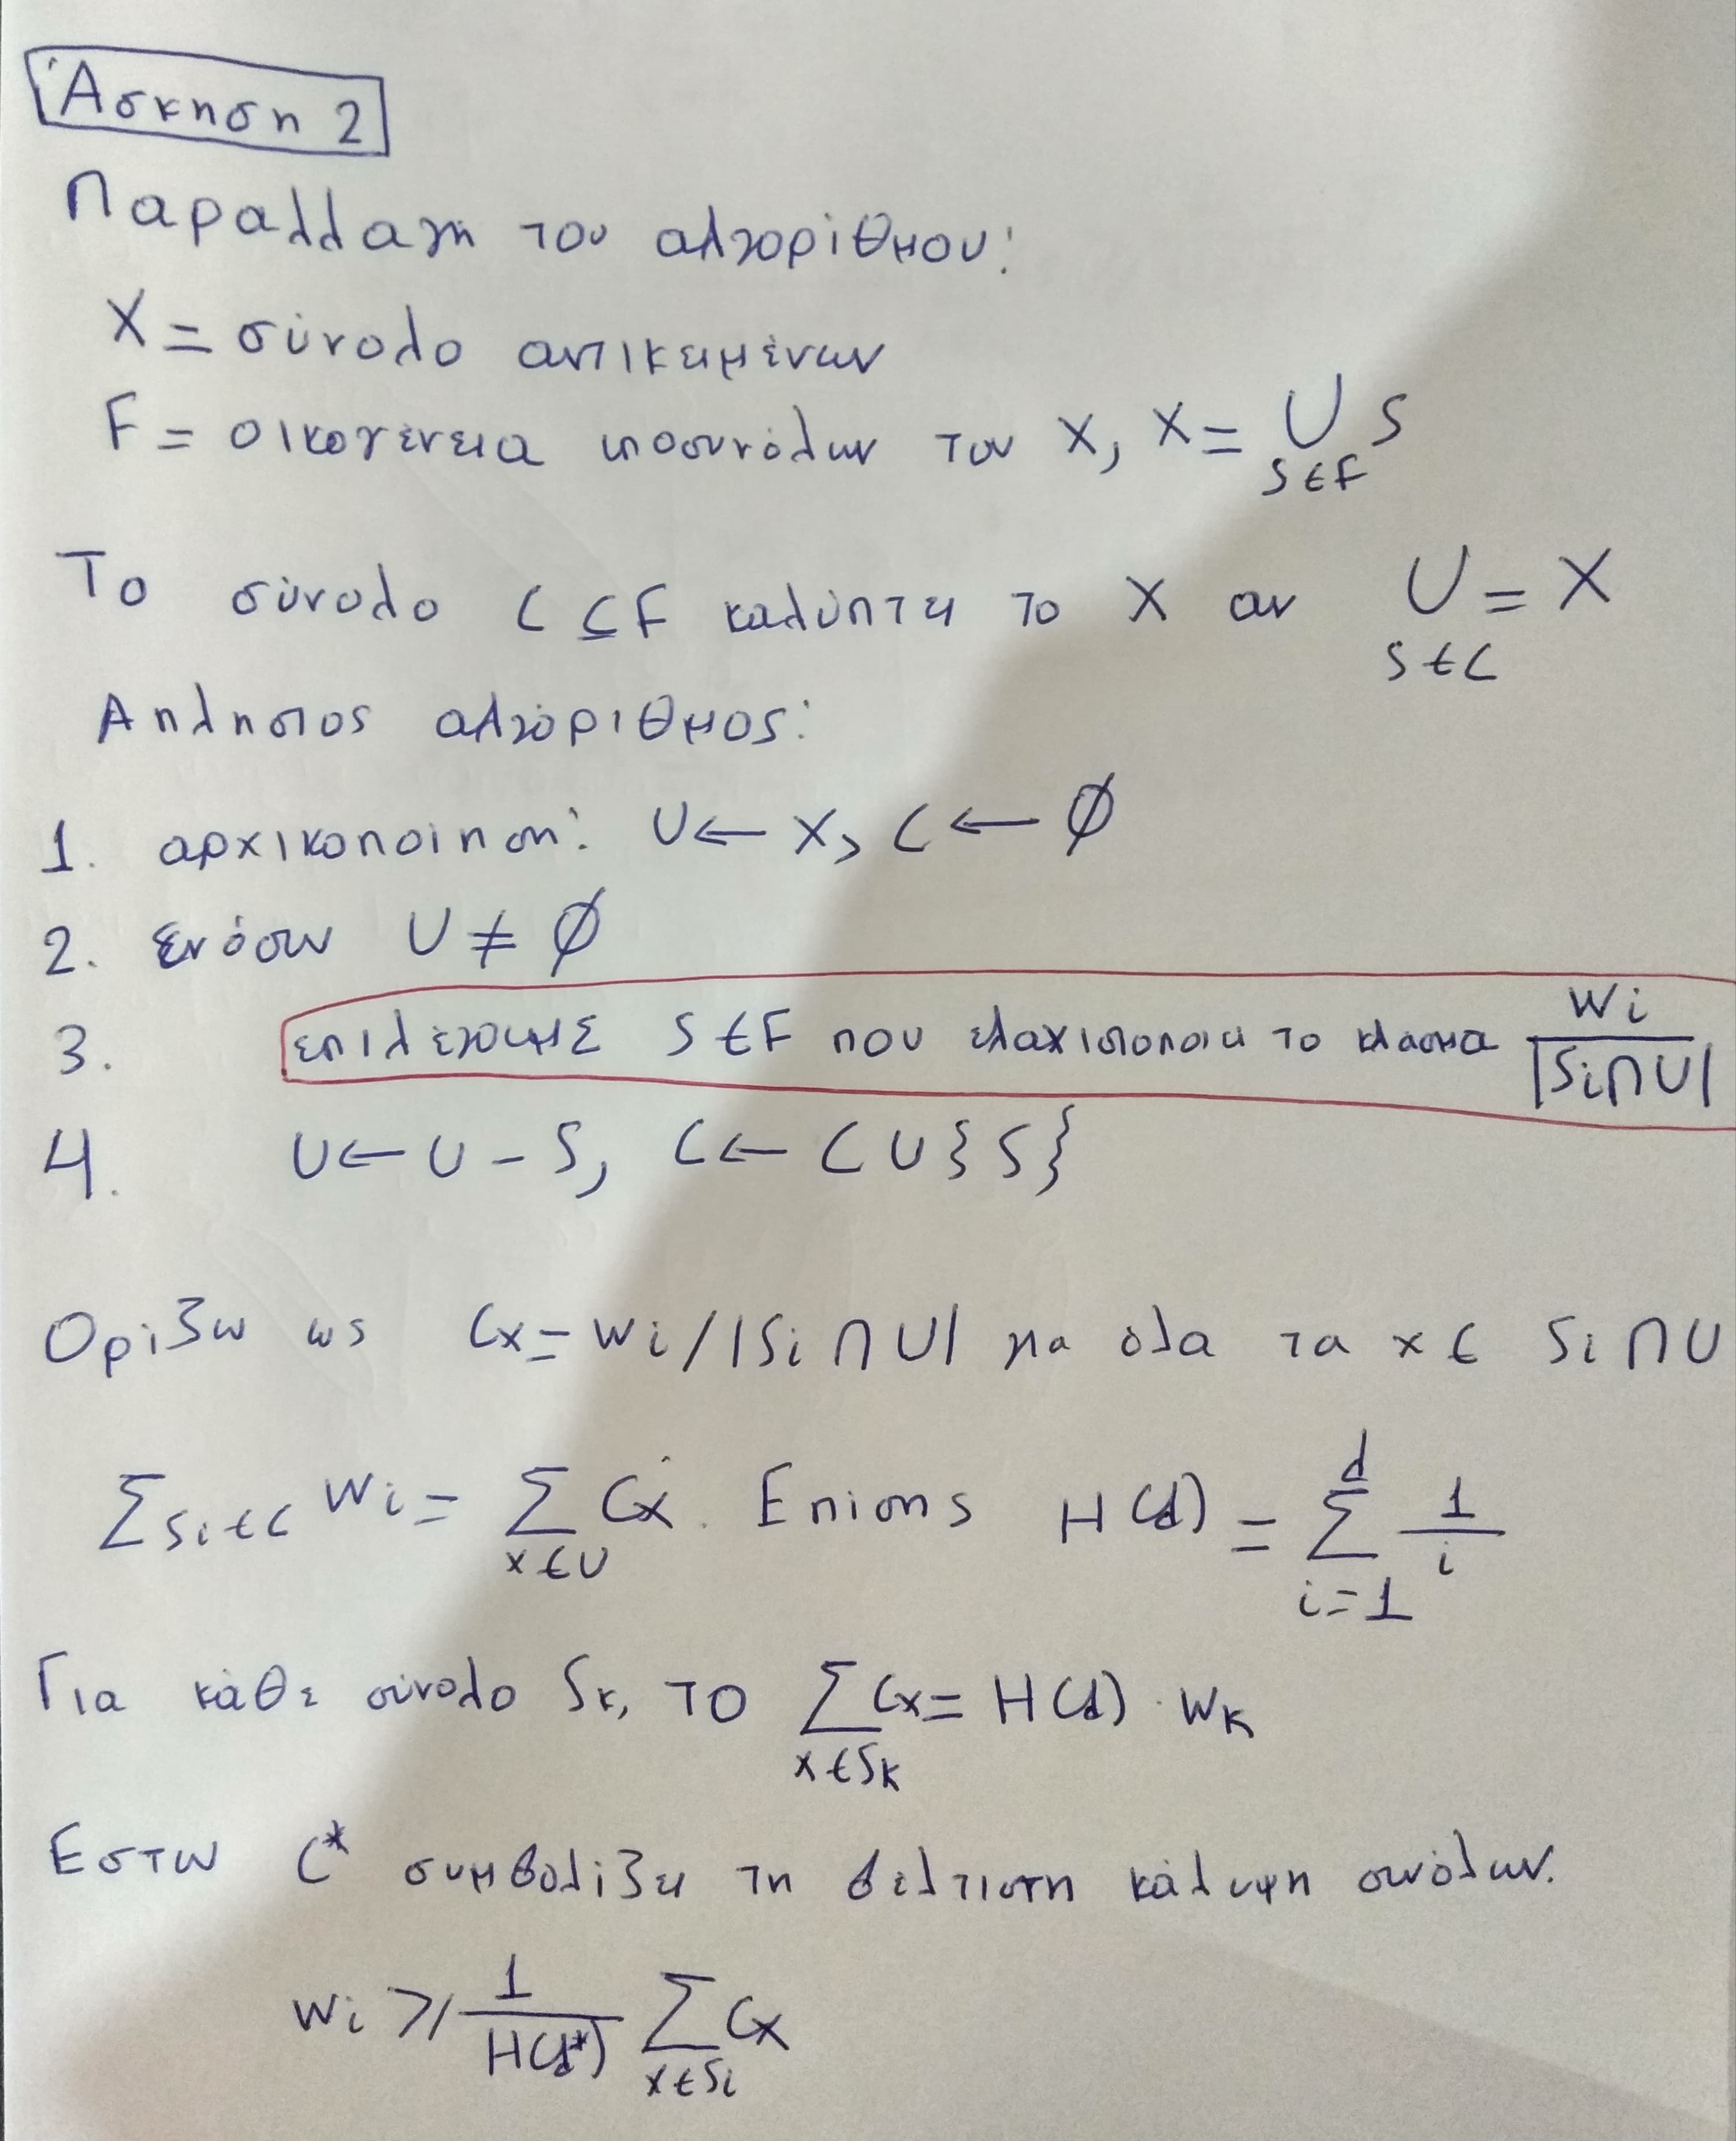 Άσκηση 2
Παραλλαγή του αλγορίθμου:
X = σύνολο αντικειμένων
F = οικογένεια υποσυνόλων του X, X = ⋃ S
S∈F
Το σύνολο C ⊆ F καλύπτει το X αν ⋃ = X
S∈C
Απληστος αλγόριθμος:
1. αρχικοποίηση: U ← X, C ← ∅
2. ενόσω U ≠ ∅
3. επιλέγουμε S ∈ F που ελαχιστοποιεί το κλάσμα wi / |Si ∩ U|
4. U ← U - S, C ← C ∪ {S}
Ορίζω ως Cx = wi / |Si ∩ U| για όλα τα x ∈ Si ∩ U
∑Si∈C wi = ∑x∈U Cx. Επίσης H(d) = ∑_{i=1}^{d} 1/i
Για κάθε σύνολο Sk, το ∑x∈Sk Cx = H(d) · wk
Εστω C* συμβολίζει τη βέλτιστη κάλυψη συνόλων.
wi ⩾ 1/H(d*) ∑x∈Si Cx